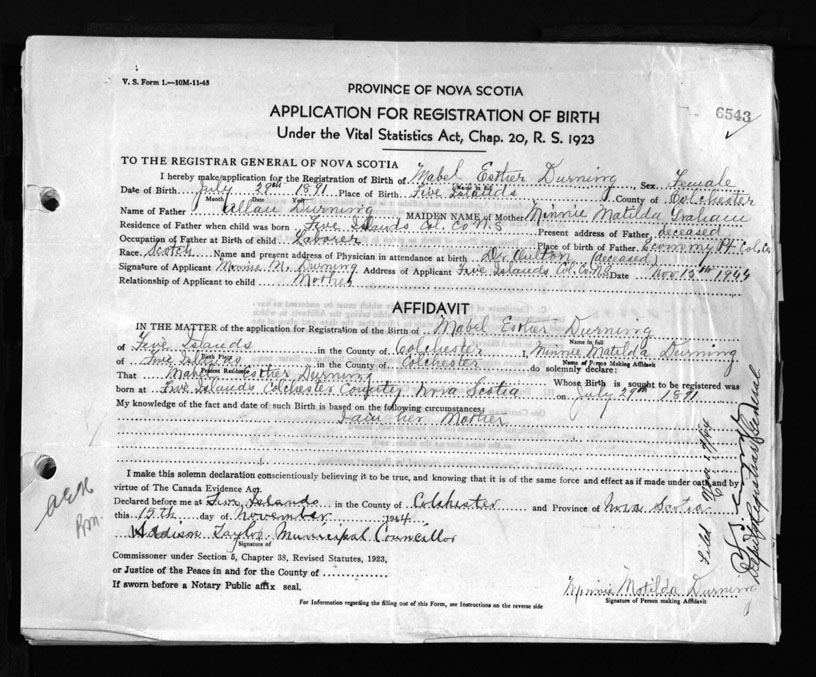 V. S. Form 1.—10M-11-43
PROVINCE OF NOVA SCOTIA
6543
APPLICATION FOR REGISTRATION OF BIRTH
Under the Vital Statistics Act, Chap. 20, R. S. 1923
TO THE REGISTRAR GENERAL OF NOVA SCOTIA
I hereby make application for the Registration of Birth of Mabel Esther Durning Sex Female
Date of Birth July 29th 1891 Place of Birth Five Islands County of Colchester
Month Date Year
Name of Father Allan Durning MAIDEN NAME of Mother Minnie Matilda Graham
Residence of Father when child was born Five Islands Col. Co N.S Present address of Father deceased
Occupation of Father at Birth of child Laborer Place of Birth of Father Economy Pt. Col. Co
Race Scotch Name and present address of Physician in attendance at birth Dr (deceased)
Signature of Applicant Minnie M. Durning Address of Applicant Five Islands Col. Co. N.S Date Nov 15th 1944
Relationship of Applicant to child Mother
AFFIDAVIT
IN THE MATTER of the application for Registration of the Birth of Mabel Esther Durning
Name in full
of Five Islands in the County of Colchester I, Minnie Matilda Durning
Birth Place Name of Person Making Affidavit
of Five Islands in the County of Colchester do solemnly declare:
Present Residence
That Mabel Esther Durning Whose Birth is sought to be registered was
born at Five Islands Colchester County Nova Scotia on July 29th 1891
My knowledge of the fact and date of such Birth is based on the following circumstances:
I am her Mother
I make this solemn declaration conscientiously believing it to be true, and knowing that it is of the same force and effect as if made under oath and by
virtue of The Canada Evidence Act.
Declared before me at Five Islands in the County of Colchester and Province of Nova Scotia
this 15th day of November 1944
Addison Taylor Municipal Councillor
Signature of
Commissioner under Section 5, Chapter 38, Revised Statutes, 1923,
or Justice of the Peace in and for the County of
If sworn before a Notary Public affix seal.
Minnie Matilda Durning
Signature of Person making Affidavit
For Information regarding the filling out of this Form, see Instructions on the reverse side
Filed
Deputy Registrar General